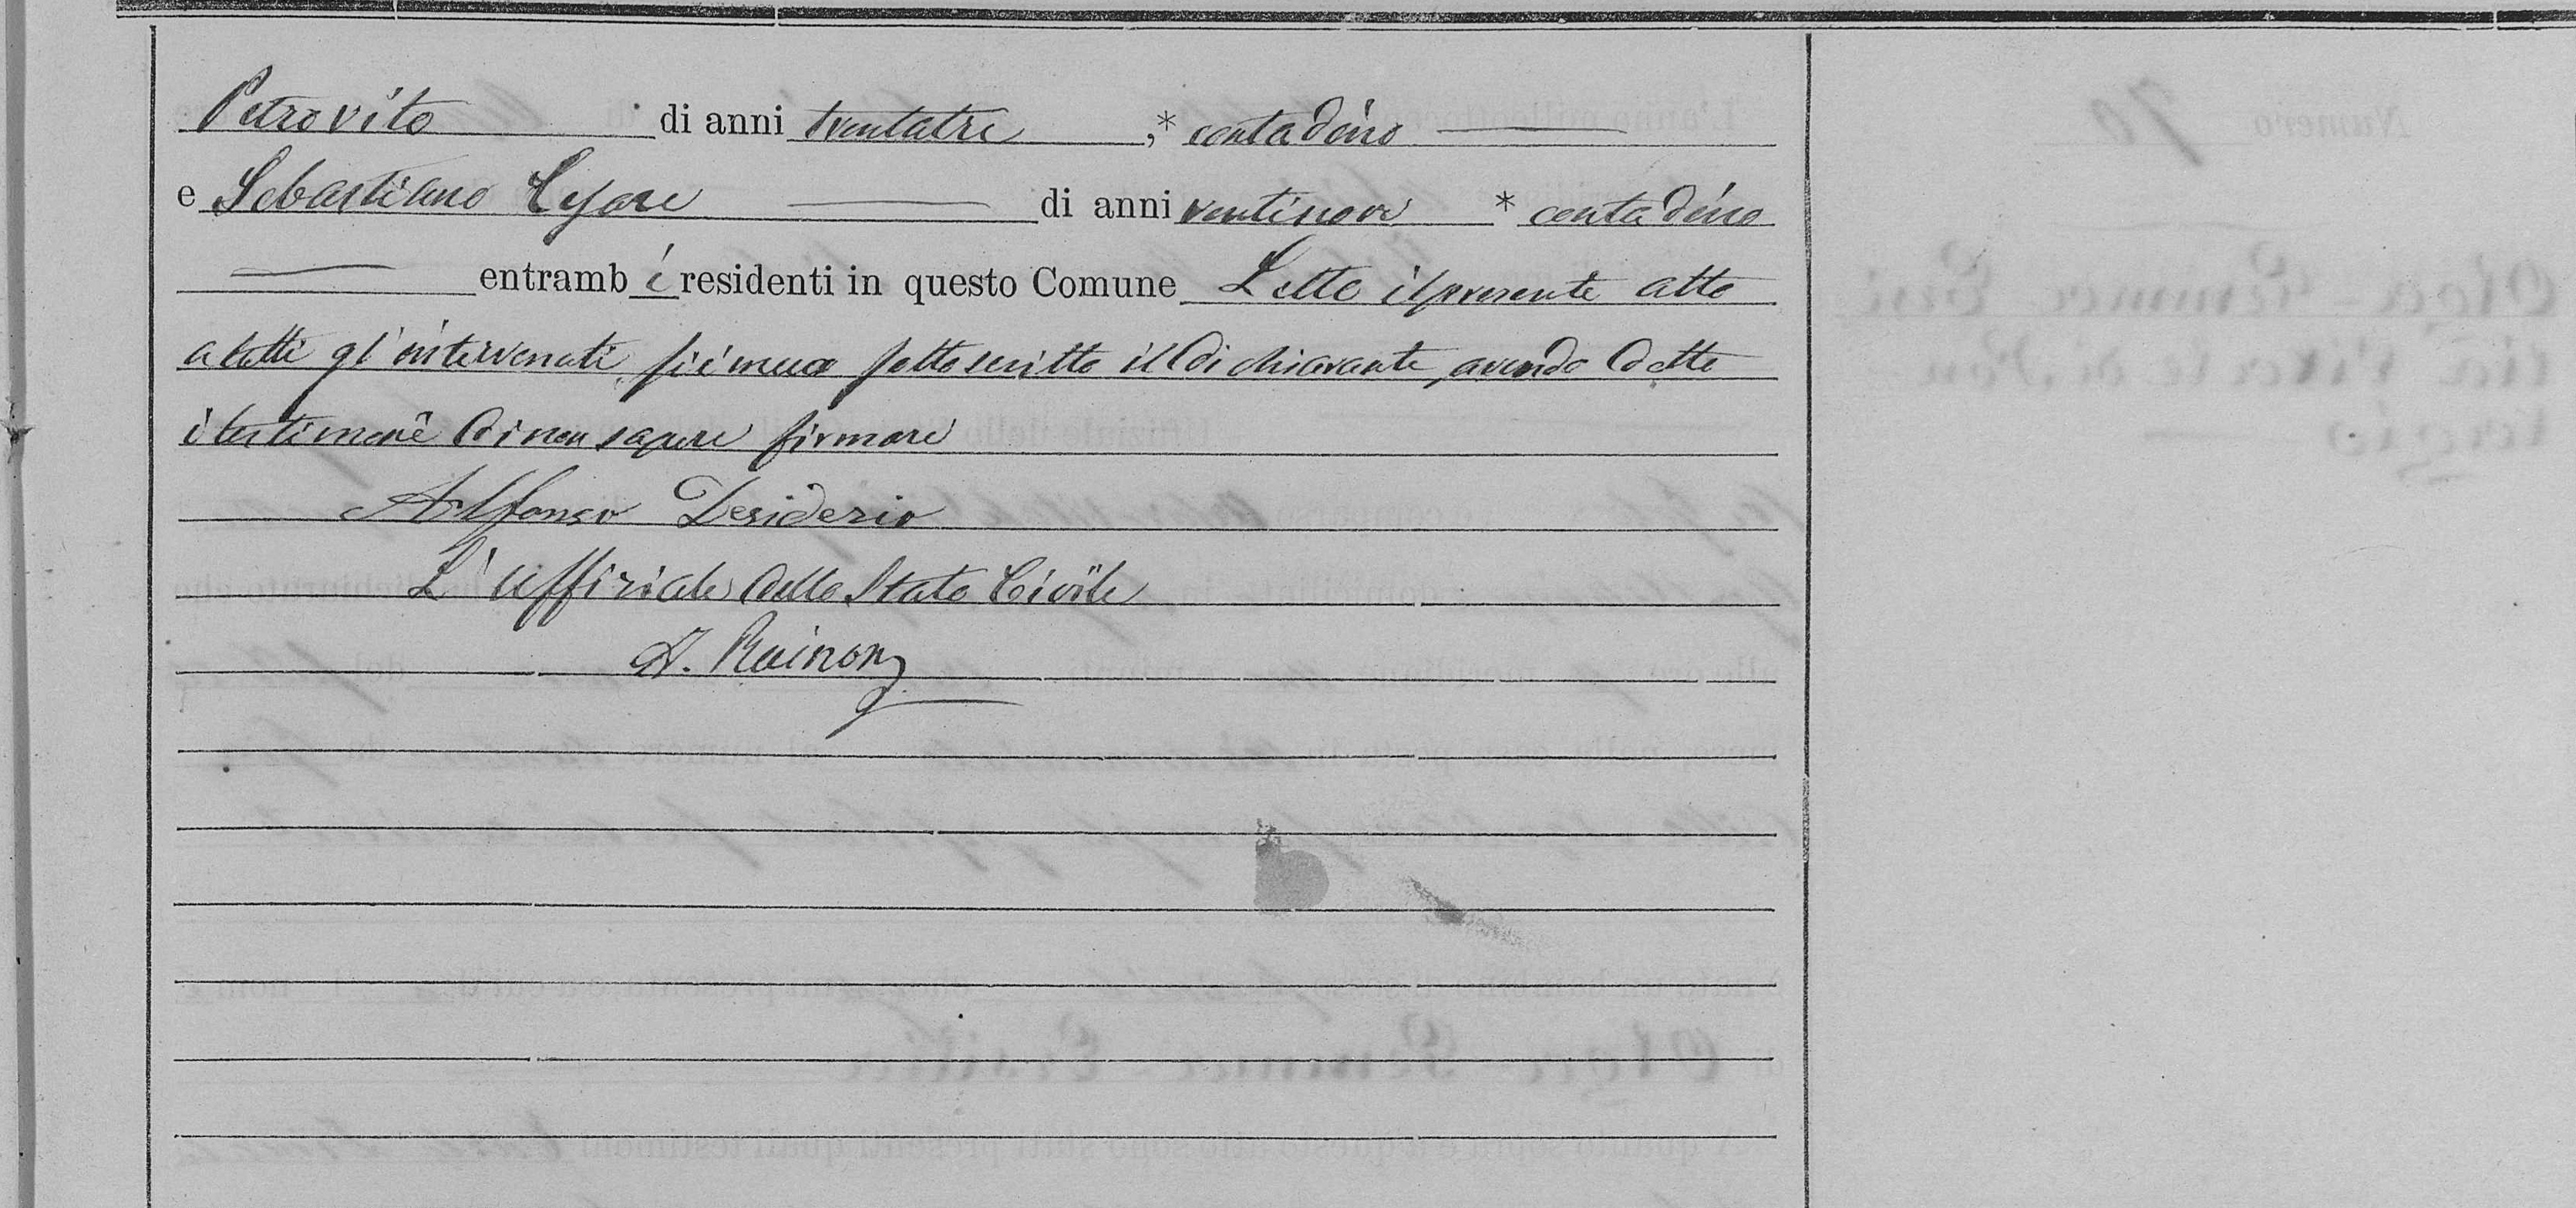 Petrovito di anni trentatre ,* contadino
e Sebastiano Cesare di anni ventinove * contadino
entramb i residenti in questo Comune Letto il presente atto
a tutti gl'intervenuti, si è meco sottoscritto il dichiarante, avendo detto
i testimoni di non sapere firmare
Alfonso Desiderio
L'uffiziale dello Stato Civile
A. Rainone
Numero 70